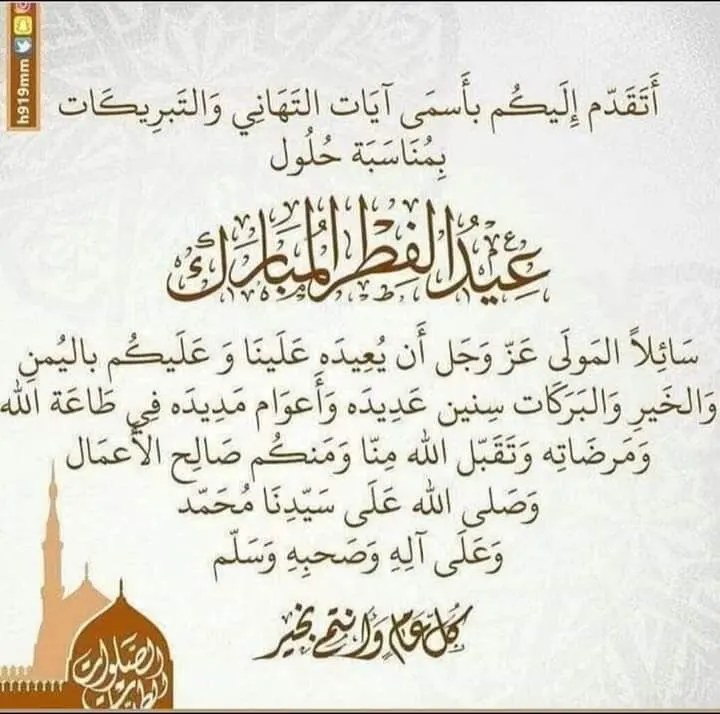 h919mm
أَتَقَدّم إِلَيكُم بأَسمَى آيَات التَهَاني وَالتَبرِيكَات
بِمُنَاسَبَة حُلُول
عِيدُ الفِطْرِ المُبَارَك
سَائِلاً المَولَى عَزّ وَجَل أَن يُعِيدَه عَلَينَا وَ عَلَيكُم باليُمنِ
وَالخَيرِ وَالبَرَكَات سِنين عَدِيدَه وَأَعوَام مَدِيدَه فِي طَاعَة الله
وَمَرضَاتِه وَتَقَبّل الله مِنّا وَمَنكُم صَالِح الأَعمَال
وَصَلى الله عَلَى سَيّدِنَا مُحَمّد
وَعَلَى آلِهِ وَصَحبِهِ وَسَلّم
كُلّ عَامٍ وَانتم بخير
الصَّلوات